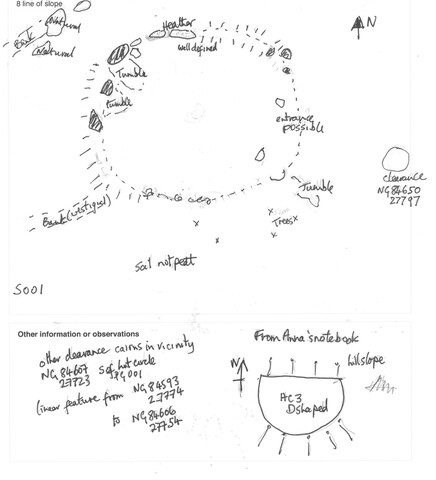 8 line of slope
Natural
Bank
Natural
Heather
well defined
N
Tumble
tumble
entrance
possible
clearance
NG 84650
27797
Tumble
Bank (vestigial)
Trees
soil not peat
S001
Other information or observations
other clearance cairns in vicinity
NG 84607 S of hut circle
27723
linear feature from NG 84593
27774
to NG 84606
27754
From Anna's notebook
N
hillslope
HC3
D shaped